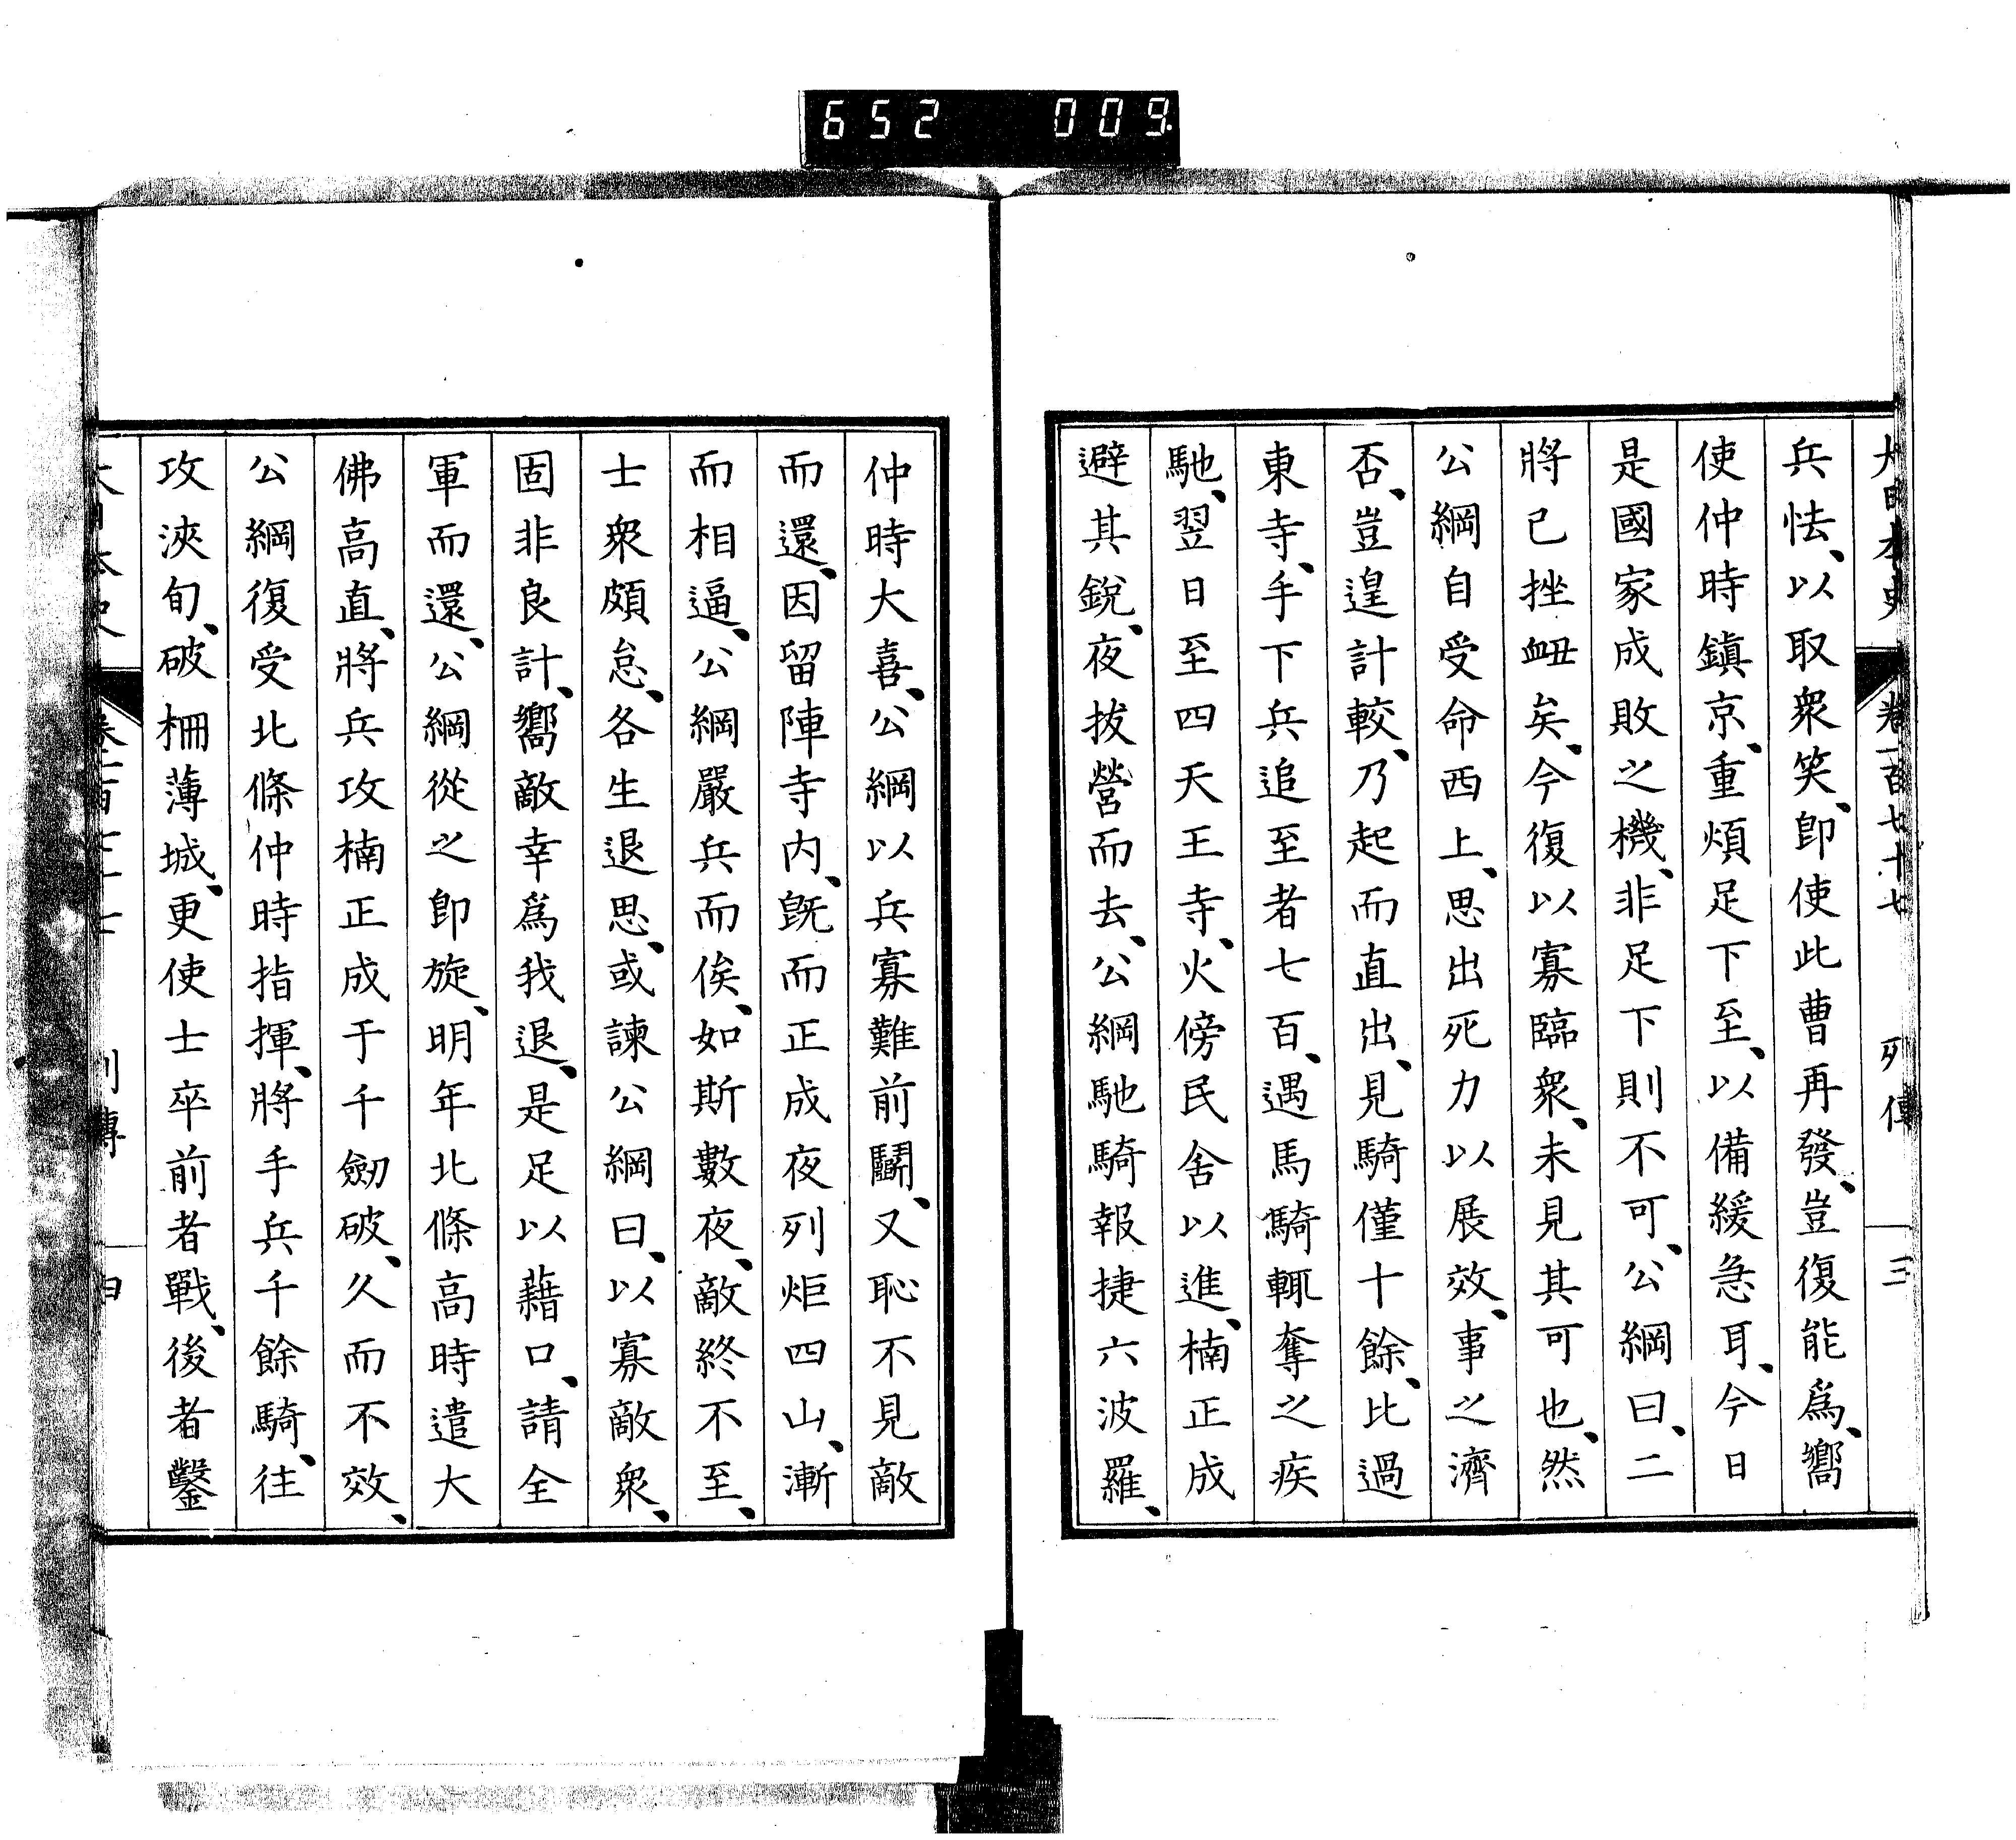 652 009
大日本史 卷一百七十七 列傳 三
兵怯、以取衆笑、卽使此曹再發、豈復能爲、嚮
使仲時鎮京、重煩足下至、以備緩急耳、今日
是國家成敗之機、非足下則不可、公綱曰、二
將已挫衄矣、今復以寡臨衆、未見其可也、然
公綱自受命西上、思出死力以展效、事之濟
否、豈遑計較、乃起而直出、見騎僅十餘、比過
東寺、手下兵追至者七百、遇馬騎輒奪之疾
馳、翌日至四天王寺、火傍民舍以進、楠正成
避其銳、夜拔營而去、公綱馳騎報捷六波羅、
仲時大喜、公綱以兵寡難前鬭、又恥不見敵
而還、因留陣寺內、旣而正成夜列炬四山、漸
而相逼、公綱嚴兵而俟、如斯數夜、敵終不至、
士衆頗怠、各生退思、或諫公綱曰、以寡敵衆、
固非良計、嚮敵幸爲我退、是足以藉口、請全
軍而還、公綱從之卽旋、明年北條高時遣大
佛高直、將兵攻楠正成于千劒破、久而不效、
公綱復受北條仲時指揮、將手兵千餘騎、往
攻浹旬、破柵薄城、更使士卒前者戰、後者鑿